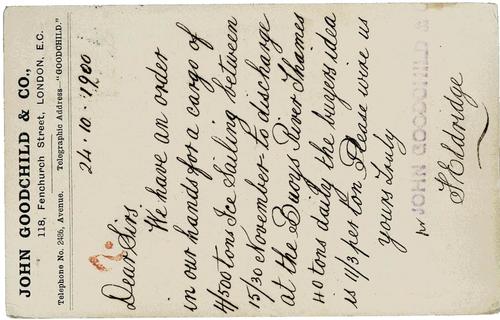 JOHN GOODCHILD & CO.,
118, Fenchurch Street, LONDON, E.C.
Telephone No. 2486, Avenue. Telegraphic Address—"GOODCHILD."
24.10.1900
Dear Sirs
We have an order
in our hands for a cargo of
4/500 tons Ice Sailing between
15/30 November to discharge
at the Buoys River Thames
40 tons daily the buyers idea
is 11/3 per ton Please wire us
yours truly
JOHN GOODCHILD &
Eldridge